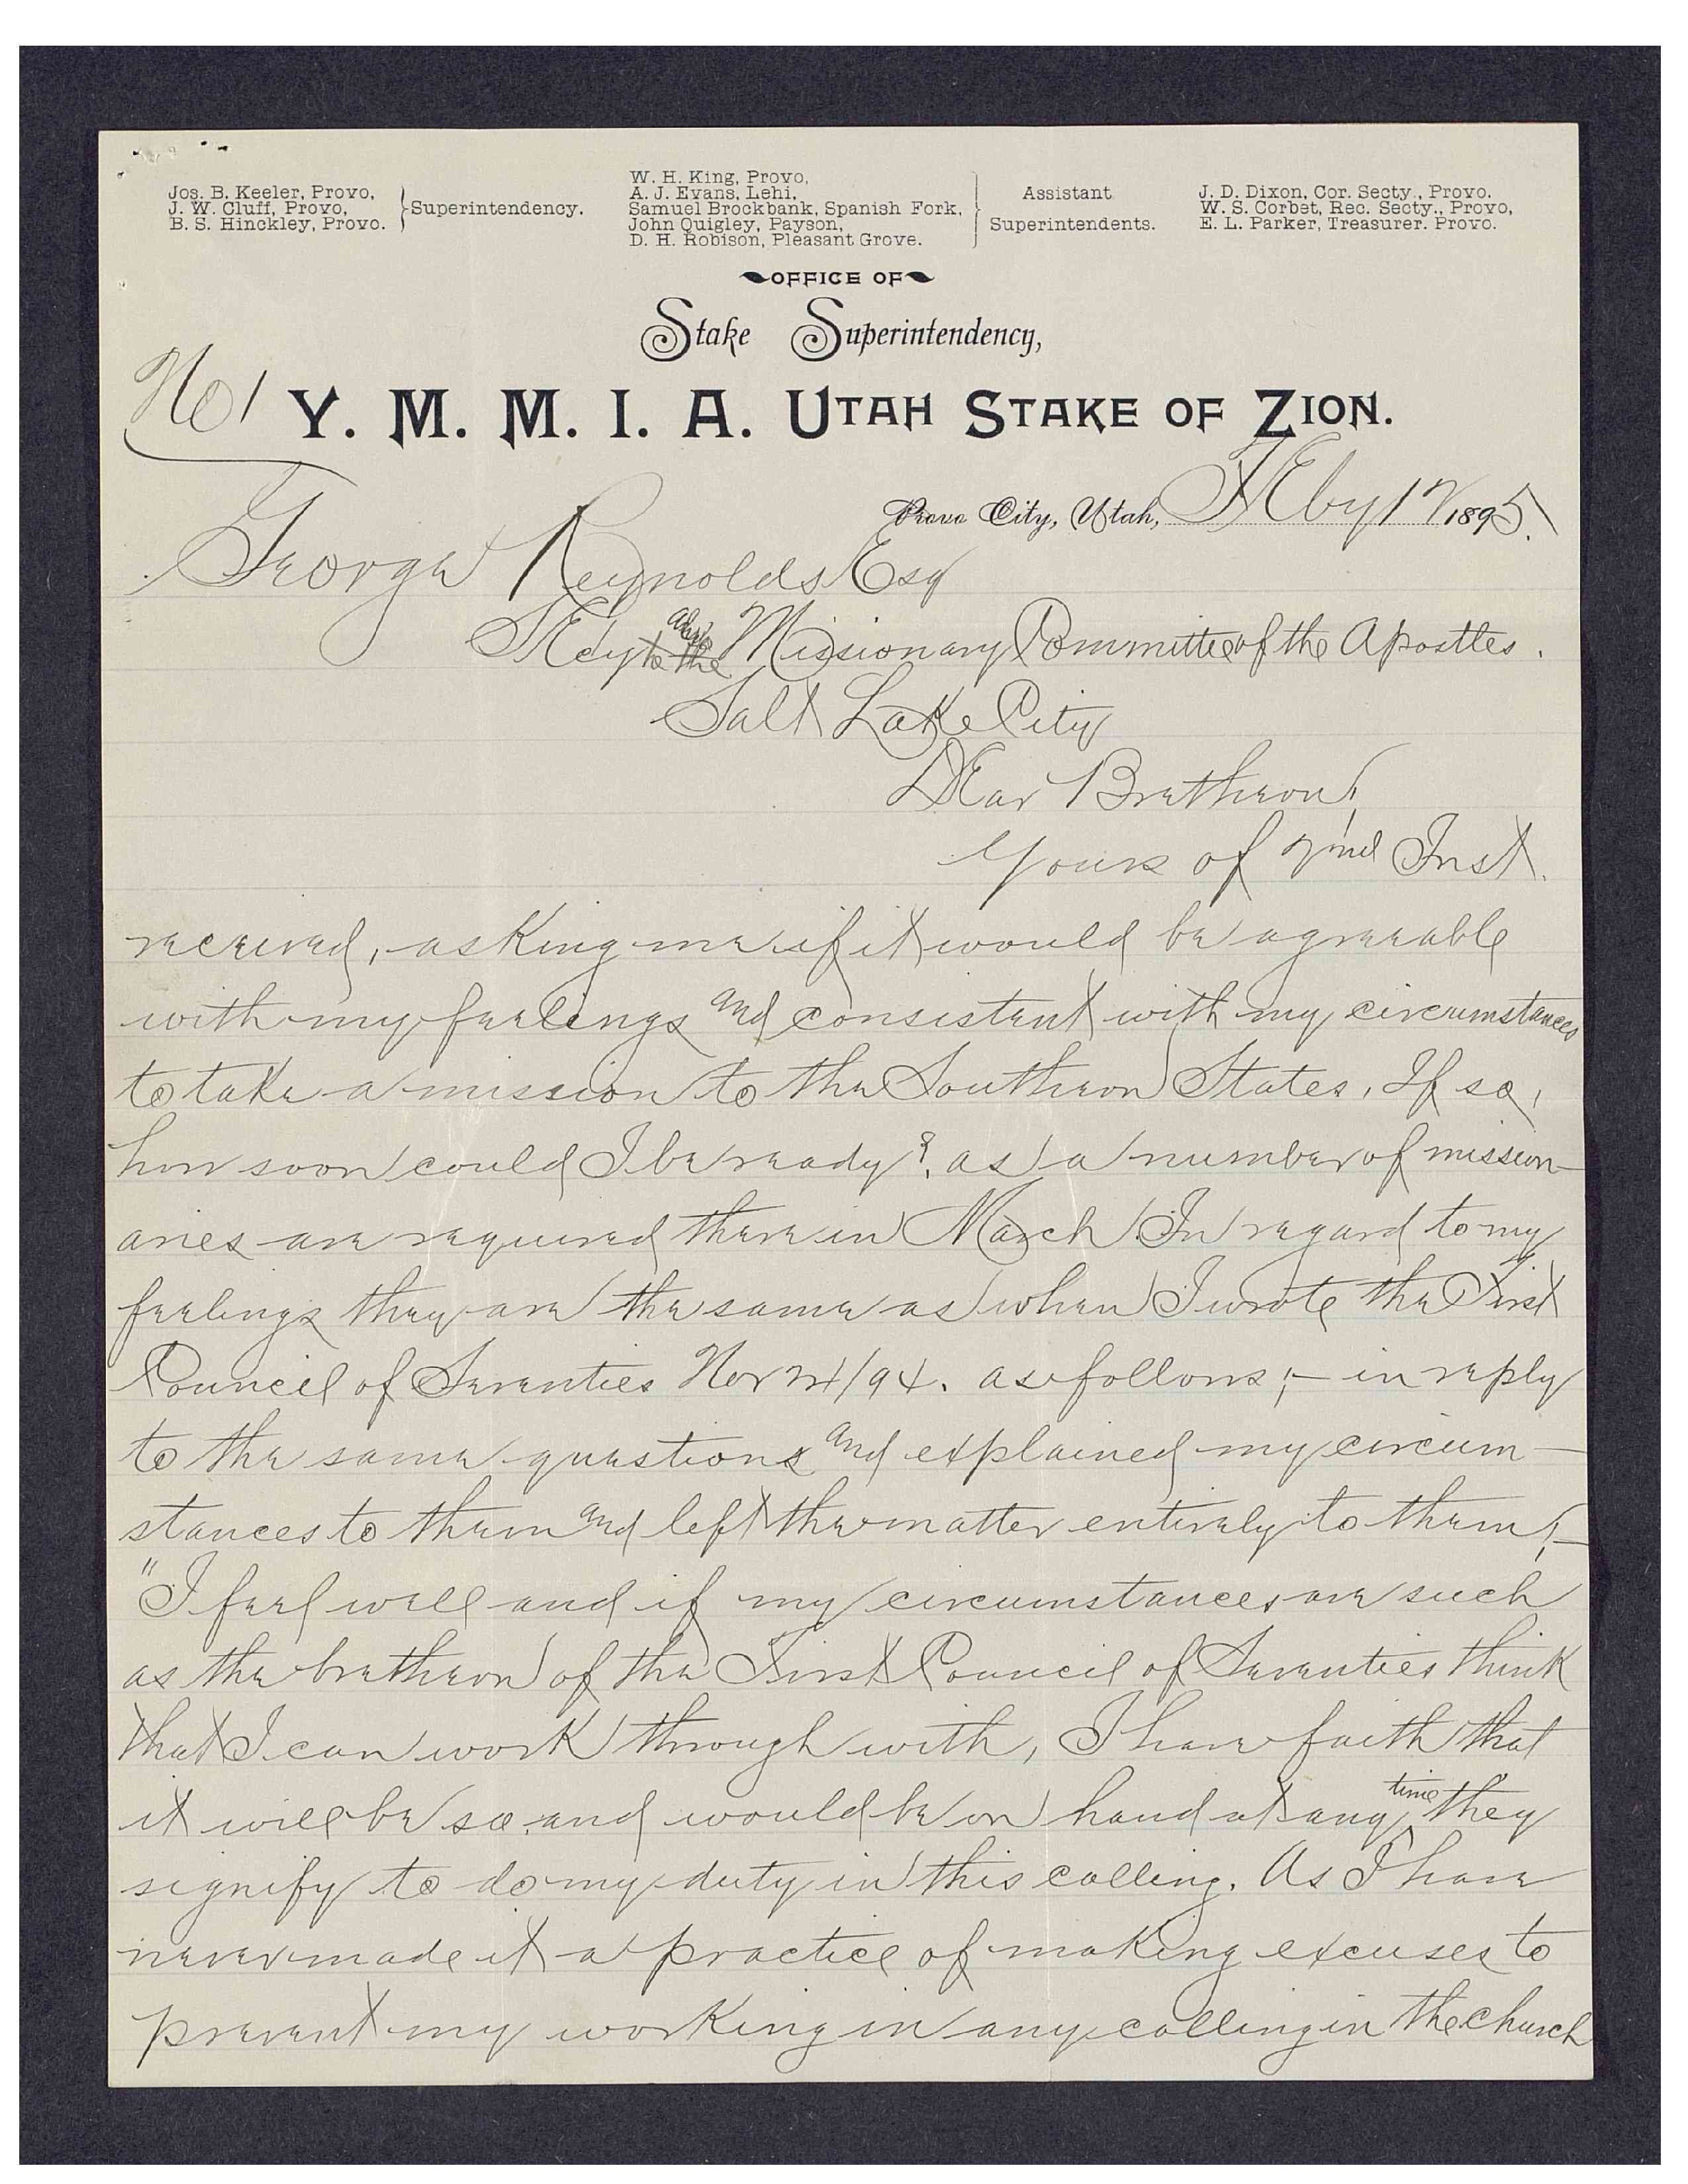 Jos. B. Keeler, Provo,
J. W. Cluff, Provo,
B. S. Hinckley, Provo.
Superintendency.
W. H. King, Provo,
A. J. Evans, Lehi,
Samuel Brockbank, Spanish Fork,
John Quigley, Payson,
D. H. Robison, Pleasant Grove.
Assistant
Superintendents.
J. D. Dixon, Cor. Secty., Provo.
W. S. Corbet, Rec. Secty., Provo,
E. L. Parker, Treasurer. Provo.
OFFICE OF
Stake Superintendency,
No 1
Y. M. M. I. A. UTAH STAKE OF ZION.
Provo City, Utah, FEby 12 1895.
George Reynolds Esq
SEcy to the Missionary Committee of the Apostles.
Salt Lake City
DEar Bretheren!
Yours of 2nd Inst.
received, asking me if it would be agreeable
with my feelings and consistent with my circumstances
to take a mission to the Southern States. If so,
how soon could I be ready? as a number of mission-
aries are required there in March. In regard to my
feelings they are the same as when I wrote the First
Council of Seventies Nov 24/94. as follows;- in reply
to the same questions and explained my circum-
stances to them and left the matter entirely to them!-
"I feel well and if my circumstances are such
as the bretheren of the First Council of Seventies think
that I can work through with, I have faith that
it will be so, and would be on hand at any time they
signify to do my duty in this calling. As I have
never made it a practice of making excuses to
prevent my working in any calling in the church